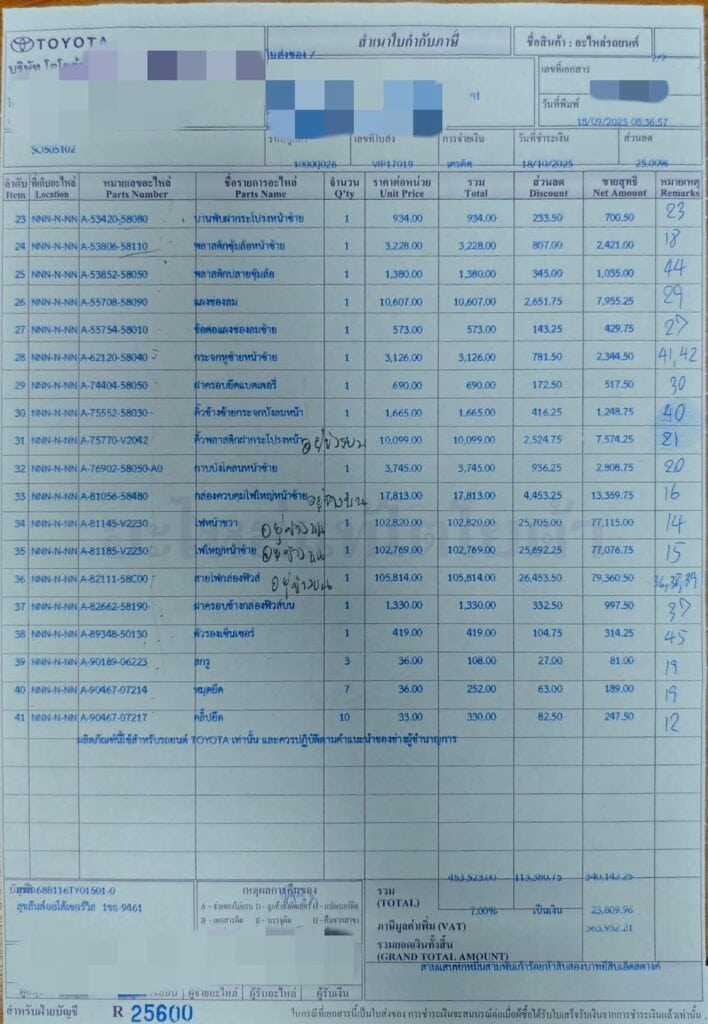 TOYOTA
สำเนาใบกำกับภาษี
ชื่อสินค้า : อะไหล่รถยนต์
ใบส่งของ /
เลขที่เอกสาร
วันที่พิมพ์
18/09/2025 08:36:57
SO505102
เลขที่ใบส่ง การจ่ายเงิน วันที่ชำระเงิน ส่วนลด
10000026 VIP17019 เครดิต 18/10/2025 25.00%
ลำดับ ที่เก็บอะไหล่ หมายเลขอะไหล่ ชื่อรายการอะไหล่ จำนวน ราคาต่อหน่วย รวม ส่วนลด ขายสุทธิ หมายเหตุ
Item Location Parts Number Parts Name Q'ty Unit Price Total Discount Net Amount Remarks
23 NNN-N-NN A-53420-58080 บานพับฝากระโปรงหน้าซ้าย 1 934.00 934.00 233.50 700.50 23
24 NNN-N-NN A-53806-58110 พลาสติกซุ้มล้อหน้าซ้าย 1 3,228.00 3,228.00 807.00 2,421.00 18
25 NNN-N-NN A-53852-58050 พลาสติกปลายซุ้มล้อ 1 1,380.00 1,380.00 345.00 1,035.00 44
26 NNN-N-NN A-55708-58090 แผงช่องลม 1 10,607.00 10,607.00 2,651.75 7,955.25 29
27 NNN-N-NN A-55754-58010 ข้อต่อแผงช่องลมซ้าย 1 573.00 573.00 143.25 429.75 27
28 NNN-N-NN A-62120-58040 กระจกหูช้ายหน้าซ้าย 1 3,126.00 3,126.00 781.50 2,344.50 41,42
29 NNN-N-NN A-74404-58050 ฝาครอบยึดแบตเตอรี่ 1 690.00 690.00 172.50 517.50 30
30 NNN-N-NN A-75552-58030 คิ้วข้างซ้ายกระจกบังลมหน้า 1 1,665.00 1,665.00 416.25 1,248.75 40
31 NNN-N-NN A-75770-V2042 คิ้วพลาสติกฝากระโปรงหน้า อยู่ข้างบน 1 10,099.00 10,099.00 2,524.75 7,574.25 21
32 NNN-N-NN A-76902-58050-A0 กาบบังโคลนหน้าซ้าย 1 3,745.00 3,745.00 936.25 2,808.75 20
33 NNN-N-NN A-81056-58480 กล่องควบคุมไฟใหญ่หน้าซ้าย อยู่ข้างบน 1 17,813.00 17,813.00 4,453.25 13,359.75 16
34 NNN-N-NN A-81145-V2230 ไฟหน้าขวา อยู่ข้างบน 1 102,820.00 102,820.00 25,705.00 77,115.00 14
35 NNN-N-NN A-81185-V2230 ไฟใหญ่หน้าซ้าย อยู่ข้างบน 1 102,769.00 102,769.00 25,692.25 77,076.75 15
36 NNN-N-NN A-82111-58C00 สายไฟกล่องฟิวส์ อยู่ข้างบน 1 105,814.00 105,814.00 26,453.50 79,360.50 36,38,39
37 NNN-N-NN A-82662-58190 ฝาครอบข้างกล่องฟิวส์บน 1 1,330.00 1,330.00 332.50 997.50 37
38 NNN-N-NN A-89348-50130 ตัวรองเซ็นเซอร์ 1 419.00 419.00 104.75 314.25 45
39 NNN-N-NN A-90189-06223 สกรู 3 36.00 108.00 27.00 81.00 19
40 NNN-N-NN A-90467-07214 หมุดยึด 7 36.00 252.00 63.00 189.00 19
41 NNN-N-NN A-90467-07217 คลิ๊ปยึด 10 33.00 330.00 82.50 247.50 12
ผลิตภัณฑ์นี้ใช้สำหรับรถยนต์ TOYOTA เท่านั้น และควรปฏิบัติตามคำแนะนำของช่างผู้ชำนาญการ
453,523.00 113,380.75 340,142.25
688116TY01501-0
สุขสันต์ออโต้เซอร์วิส 1ขธ-9461
เหตุผลการคืนของ
รวม
(TOTAL)
7.00% เป็นเงิน 23,809.96
ภาษีมูลค่าเพิ่ม (VAT)
363,952.21
รวมยอดเงินทั้งสิ้น
(GRAND TOTAL AMOUNT)
สามแสนหกหมื่นสามพันเก้าร้อยห้าสิบสองบาทยี่สิบเอ็ดสตางค์
ผู้จ่ายอะไหล่ ผู้รับอะไหล่ ผู้รับเงิน
สำหรับฝ่ายบัญชี R 25600 ในกรณีที่เอกสารนี้เป็นใบส่งของ การชำระเงินจะสมบูรณ์ต่อเมื่อผู้ซื้อได้รับใบเสร็จรับเงินจากการชำระเงินแล้วเท่านั้น